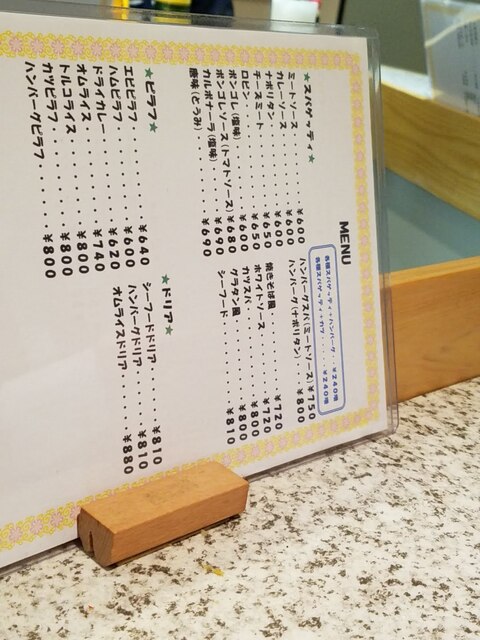 MENU
各種スパゲッティ+ハンバーグ・・¥240増
各種スパゲッティ+カツ・・・・¥240増
★スパゲッティ★
ミートソース・・・・・・¥600
カレーソース・・・・・・¥600
ナポリタン・・・・・・・¥650
チーズミート・・・・・・¥650
ロビン・・・・・・・・・¥600
ボンゴレ(塩味)・・・・・¥680
ボンゴレソース(トマトソース)¥690
カルボナーラ(塩味)・・・¥690
ハンバーグスパ(ミートソース)¥750
ハンバーグ(ナポリタン)¥800
焼きそば風・・・・・・・¥720
ホワイトソース・・・・・¥720
カツスパ・・・・・・・・¥800
グラタン風・・・・・・・¥800
シーフード・・・・・・・¥810
★ピラフ★
エビピラフ・・・・・・・¥640
ハムピラフ・・・・・・・¥600
ドライカレー・・・・・・¥620
オムライス・・・・・・・¥740
トルコライス・・・・・・¥800
カツピラフ・・・・・・・¥800
ハンバーグピラフ・・・・¥800
★ドリア★
シーフードドリア・・・・¥810
ハンバーグドリア・・・・¥810
オムライスドリア・・・・¥880